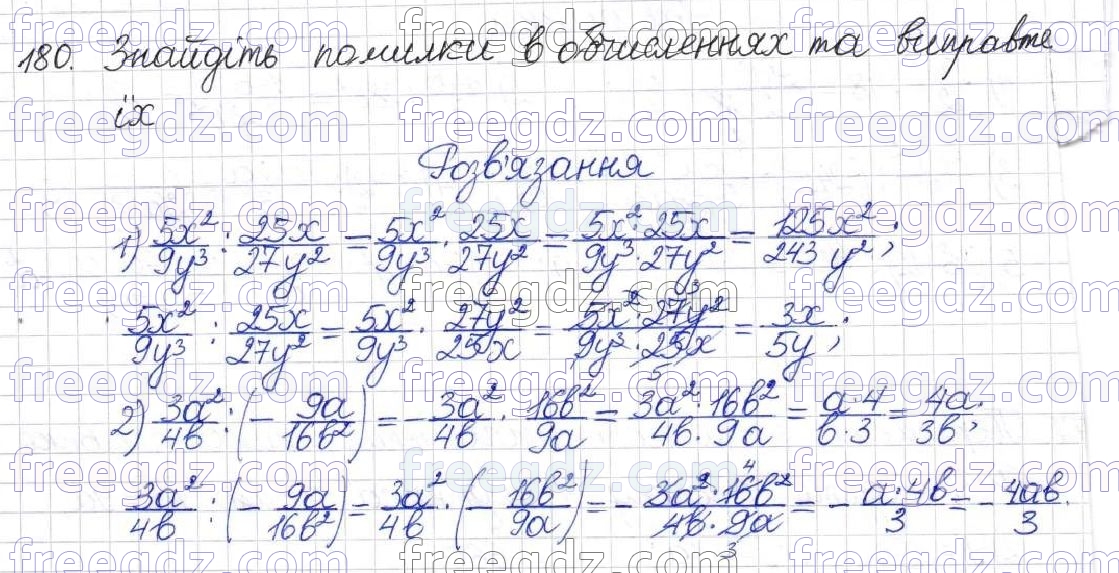 180. Знайдіть помилки в обчисленнях та виправте
їх
Розв'язання
1) 5x²/9y³ : 25x/27y² = 5x²/9y³ · 25x/27y² = 5x²·25x/9y³·27y² = 125x²/243y²;
5x²/9y³ : 25x/27y² = 5x²/9y³ · 27y²/25x = 5x²·27y²/9y³·25x = 3x/5y;
2) 3a²/4b : (- 9a/16b²) = - 3a²/4b · 16b²/9a = 3a²·16b²/4b·9a = a·4/b·3 = 4a/3b;
3a²/4b : (- 9a/16b²) = 3a²/4b · (- 16b²/9a) = - 3a²·16b²/4b·9a = - a·4b/3 = - 4ab/3.
freegdz.com